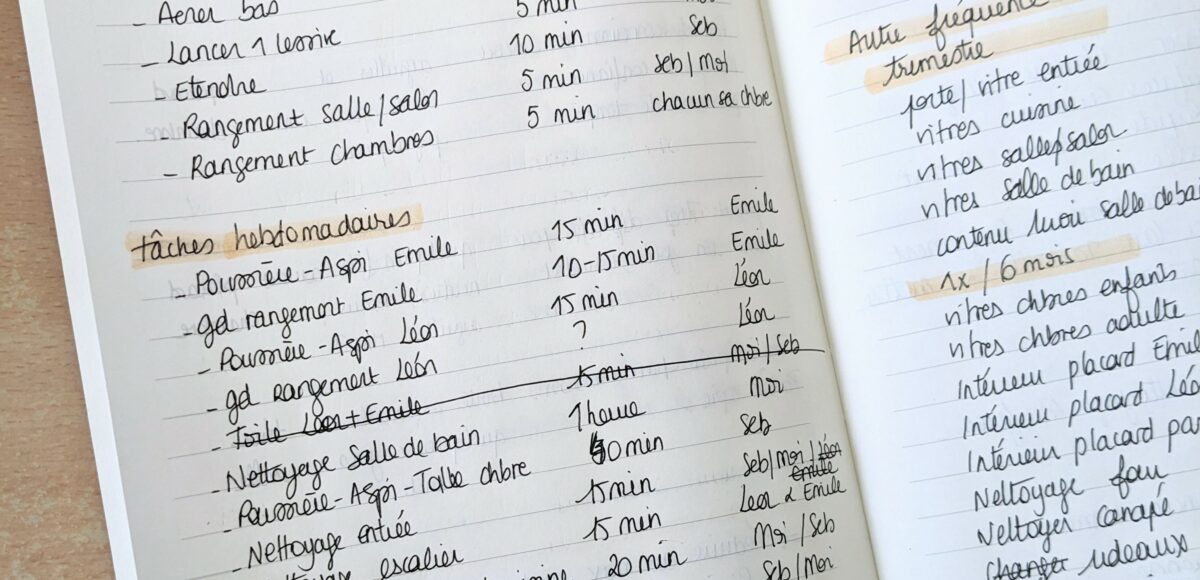 - Aerer bas
- Lancer 1 lessive 5 min Moi
- Etendre 10 min Seb
- Rangement salle/salon 5 min Seb/Moi
- Rangement chambres 5 min chacun sa chbre
tâches hebdomadaires
- Poussière-Aspi Emile 15 min Emile
- gd rangement Emile 10-15 min Emile
- Poussière-Aspi Léon 15 min Léon
- gd rangement Léon ? Léon
- Toile Léon+Emile 15 min Moi/Seb
- Nettoyage Salle de bain 1 heure Moi
- Poussière-Aspi-Talbe chbre 40 min Seb
Nettoyage entrée 15 min Seb/Moi/Léon
Emile
escalier 15 min Leon & Emile
20 min Moi/Seb
Seb/Moi
Autre fréquence
trimestre
porte/vitre entrée
vitres cuisine
vitres salle/salon
vitres salle de bain
contenu salle de bai
1x/6 mois
vitres chbres enfants
vitres chbres adulte
Intérieur placard Emil
Intérieur placard Léo
Intérieur placard par
Nettoyage four
Nettoyer canapé
changer rideaux